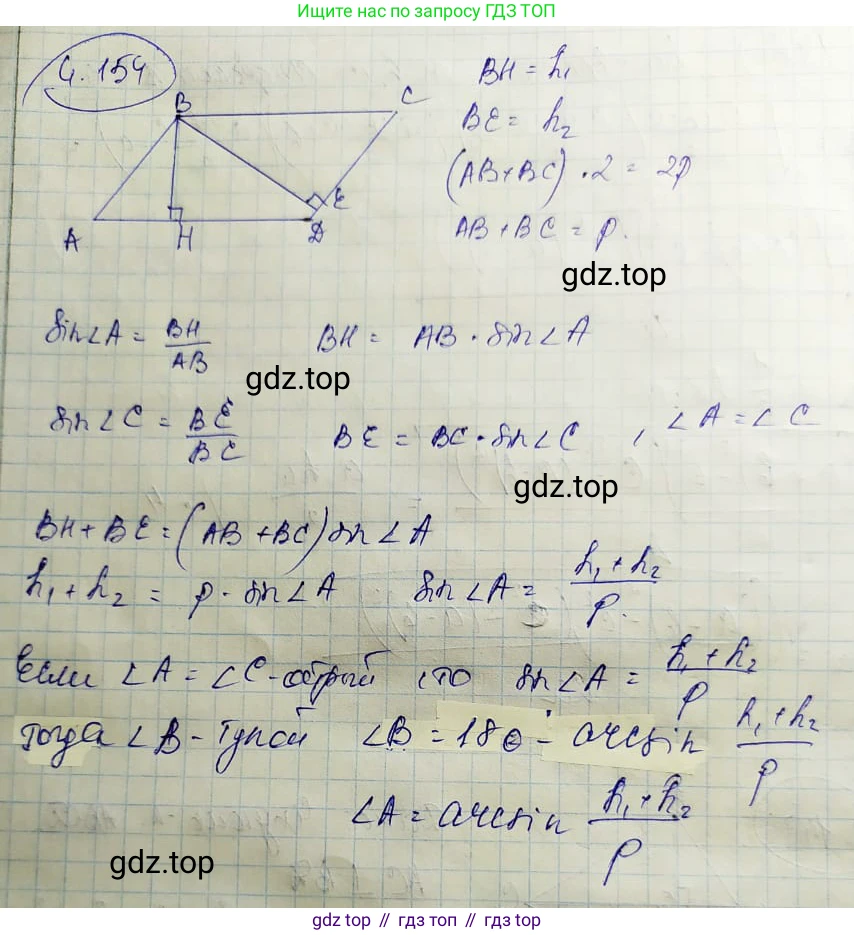 Ищите нас по запросу ГДЗ ТОП
4.154
B C
A H D E
BH = h₁
BE = h₂
(AB+BC) · 2 = 2p
AB + BC = p.
gdz.top
sin∠A = BH/AB BH = AB · sin∠A
gdz.top
sin∠C = BE/BC BE = BC · sin∠C , ∠A = ∠C
gdz.top
BH + BE = (AB + BC) sin∠A
h₁ + h₂ = p · sin∠A sin∠A = h₁ + h₂/p.
Если ∠A = ∠C - острый , то sin∠A = h₁ + h₂/p
тогда ∠B - тупой ∠B = 180° - arcsin h₁ + h₂/p
∠A = arcsin h₁ + h₂/p
gdz.top
gdz top // гдз топ // gdz top